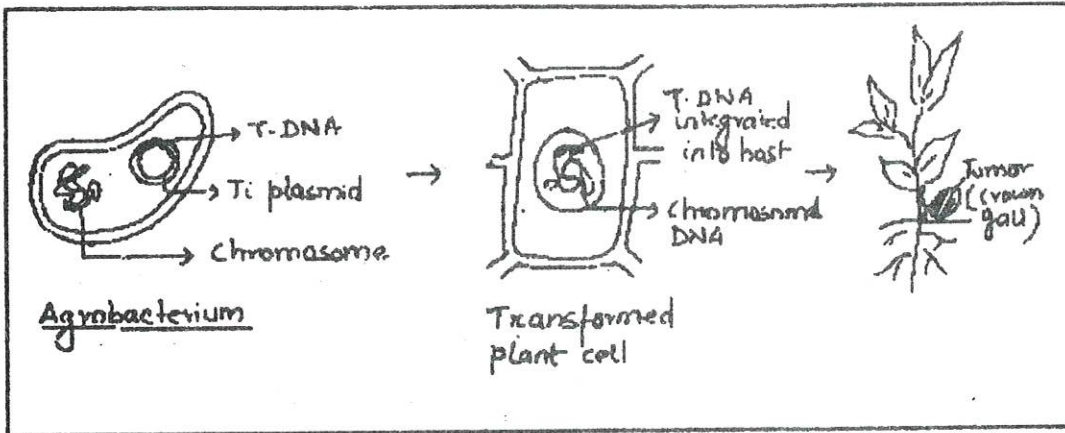 T-DNA
Ti plasmid
Chromasome
Agrobacterium
T-DNA
integrated
into host
Chromosomal
DNA
Transformed
plant cell
Tumor
(crown
gall)